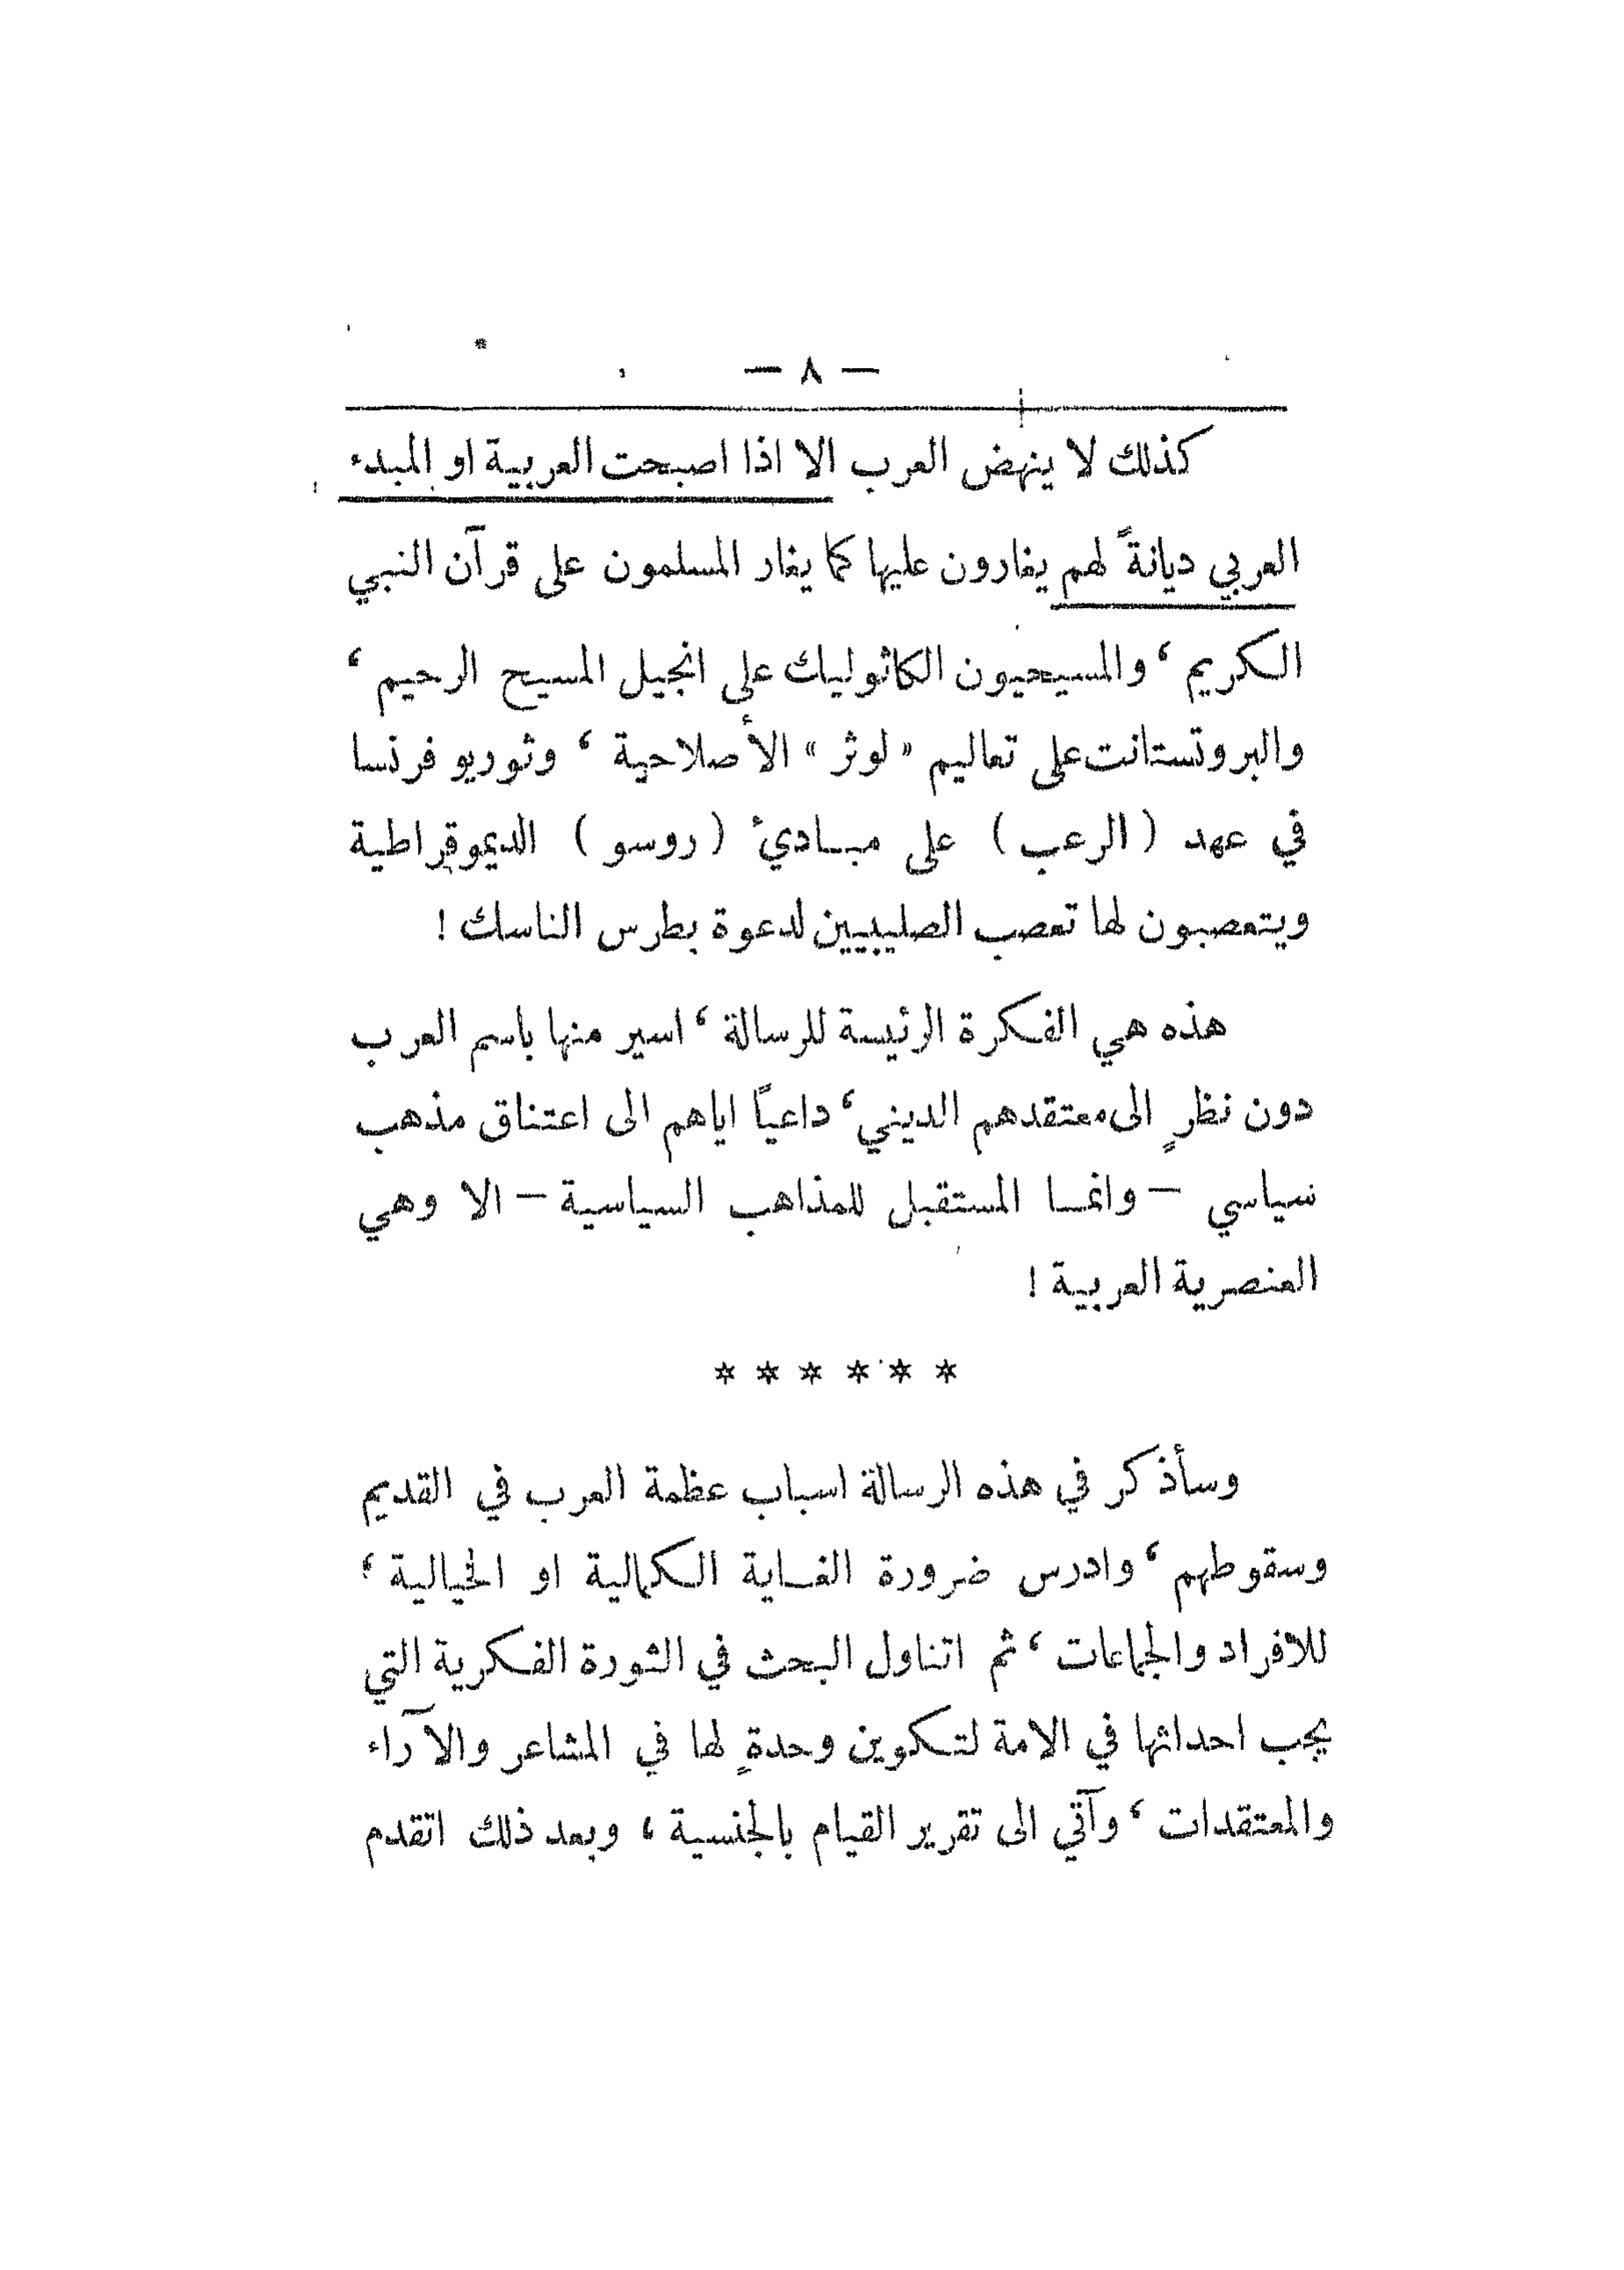 — ٨ —
كذلك لا ينهض العرب الا اذا اصبحت العربية او المبدء
العربي ديانةً لهم يغارون عليها كما يغار المسلمون على قرآن النبي
الكريم ، والمسيحيون الكاثوليك على انجيل المسيح الرحيم ،
والبروتستانت على تعاليم « لوثر » الأصلاحية ، وثوريو فرنسا
في عهد ( الرعب ) على مبادئ ( روسو ) الديموقراطية
ويتعصبون لها تعصب الصليبيين لدعوة بطرس الناسك !
هذه هي الفكرة الرئيسة للرسالة ، اسير منها باسم العرب
دون نظرٍ الى معتقدهم الديني ، داعياً اياهم الى اعتناق مذهب
سياسي — وانما المستقبل للمذاهب السياسية — الا وهي
العنصرية العربية !
* * * * * *
وسأذكر في هذه الرسالة اسباب عظمة العرب في القديم
وسقوطهم ، وادرس ضرورة الغاية الكمالية او الخيالية ،
للافراد والجماعات ، ثم اتناول البحث في الثورة الفكرية التي
يجب احداثها في الامة لتكوين وحدةٍ لها في المشاعر والآراء
والمعتقدات ، وآتي الى تقرير القيام بالجنسية ، وبعد ذلك اتقدم